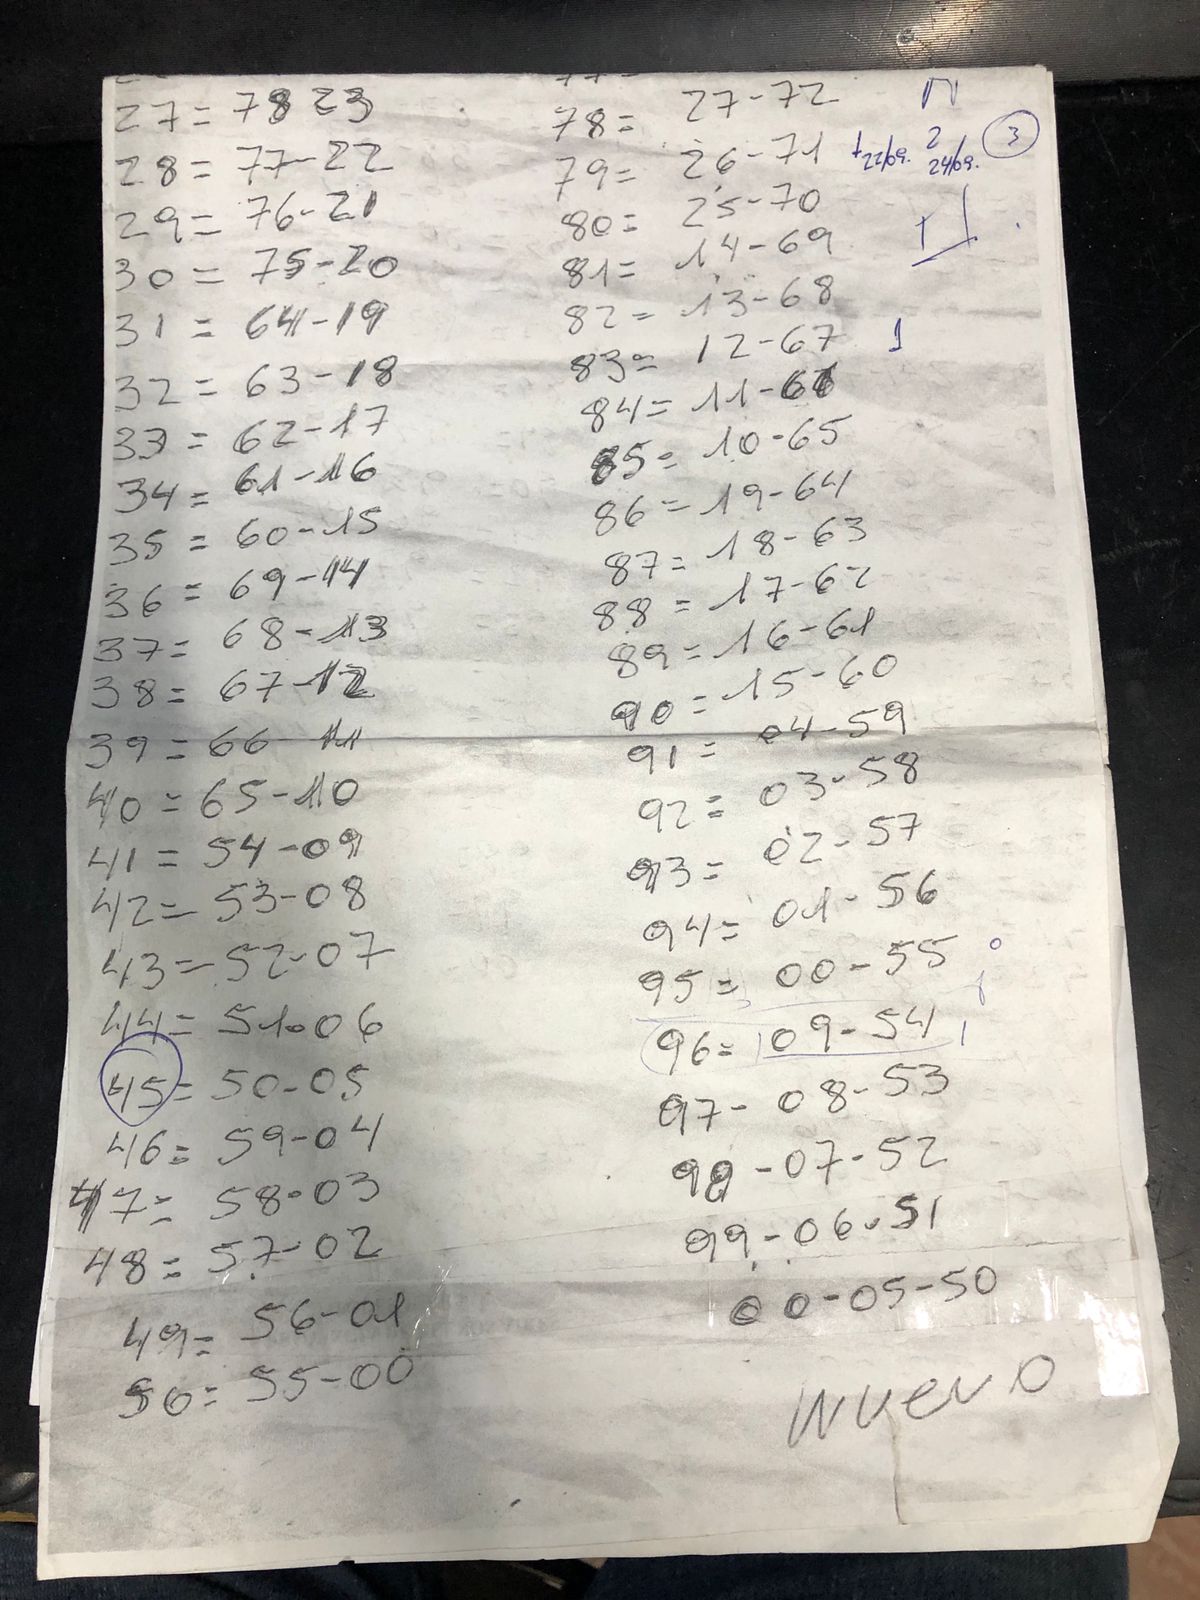 27 = 78 23
28 = 77-22
29 = 76-21
30 = 75-20
31 = 64-19
32 = 63-18
33 = 62-17
34 = 61-16
35 = 60-15
36 = 69-14
37 = 68-13
38 = 67-12
39 = 66 11
40 = 65-10
41 = 54-09
42 = 53-08
43 = 52-07
44 = 51-06
45 = 50-05
46 = 59-04
47 = 58-03
48 = 57-02
49 = 56-01
50 = 55-00
78 = 27-72
79 = 26-71
22/09. 2 24/09. 3
80 = 25-70
81 = 14-69
82 = 13-68
83 = 12-67 1
84 = 11-66
85 = 10-65
86 = 19-64
87 = 18-63
88 = 17-62
89 = 16-61
90 = 15-60
91 = 04-59
92 = 03-58
93 = 02-57
94 = 01-56
95 = 00-55
96 = 09-54
97 - 08-53
98 - 07-52
99 - 06-51
00-05-50
Nuevo